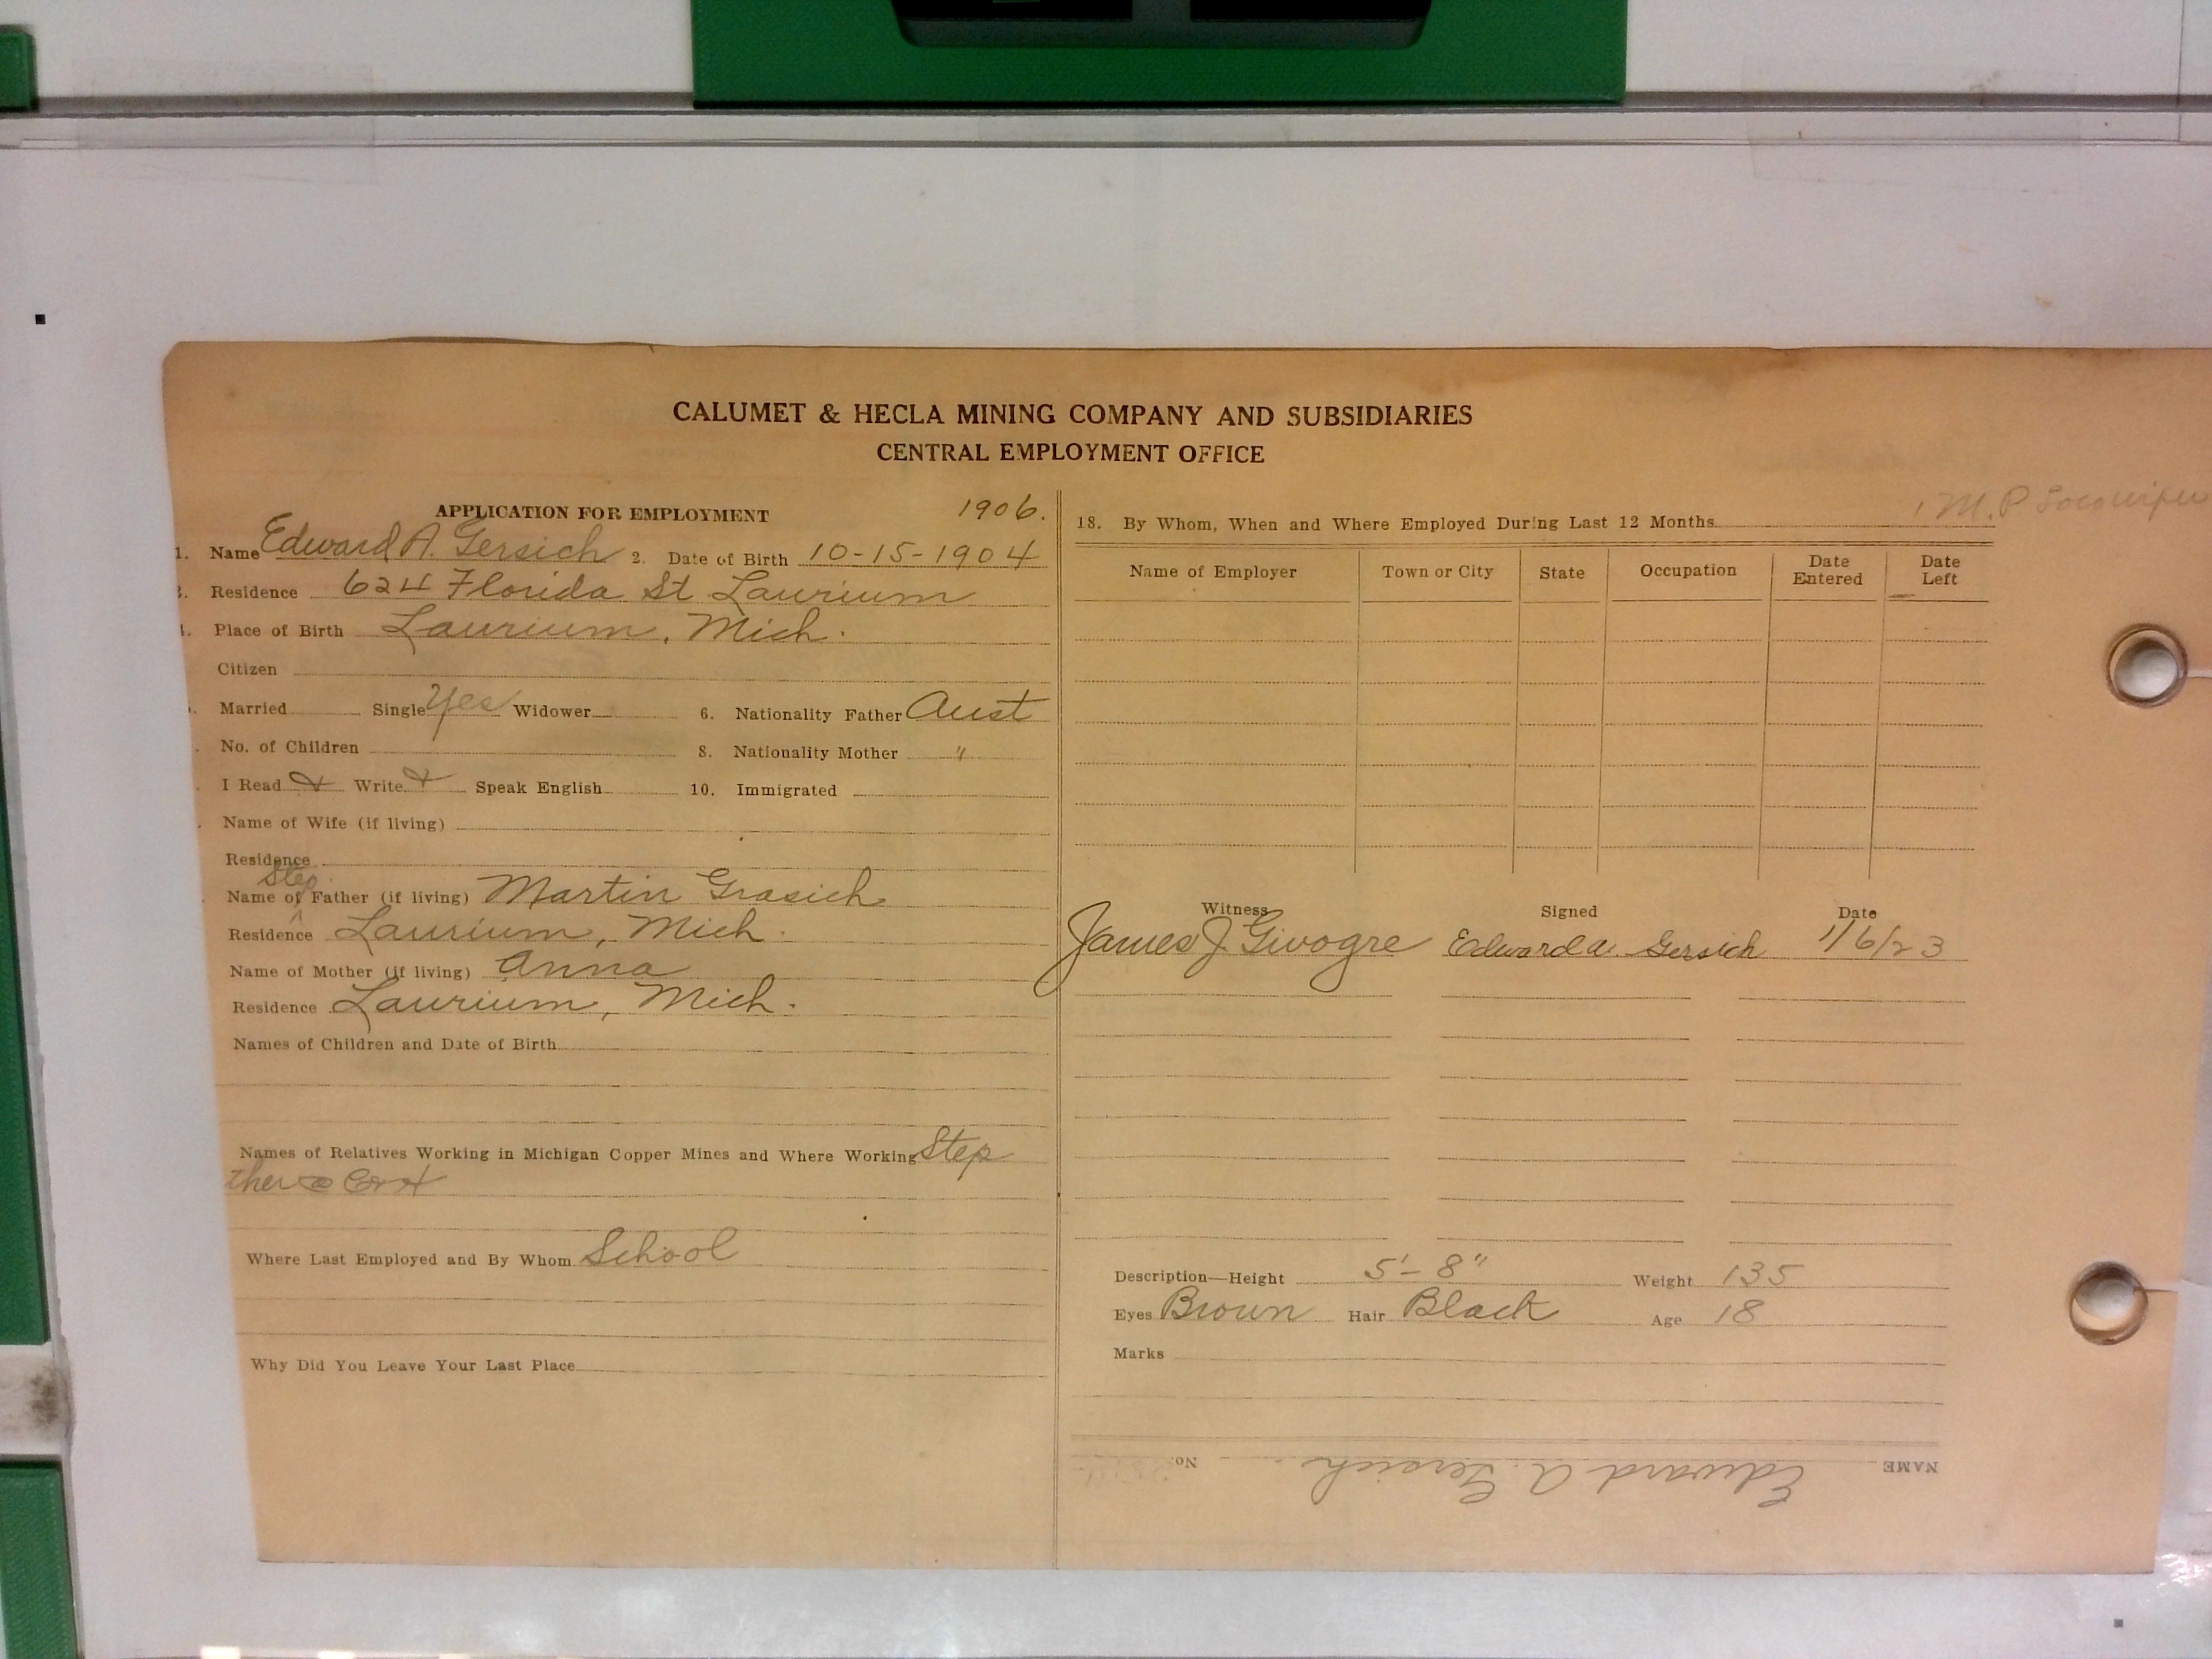 CALUMET & HECLA MINING COMPANY AND SUBSIDIARIES
CENTRAL EMPLOYMENT OFFICE
APPLICATION FOR EMPLOYMENT 1906.
1. Name Edward A. Gersich 2. Date of Birth 10-15-1904
Residence 624 Florida St Laurium
Place of Birth Laurium, Mich.
Citizen
Married Single Yes Widower 6. Nationality Father Aust
No. of Children 8. Nationality Mother "
I Read & Write & Speak English 10. Immigrated
Name of Wife (if living)
Residence
Step
Name of Father (if living) Martin Grasich
Residence Laurium, Mich.
Name of Mother (if living) Anna
Residence Laurium, Mich.
Names of Children and Date of Birth
Names of Relatives Working in Michigan Copper Mines and Where Working Step
ther
Where Last Employed and By Whom School
Why Did You Leave Your Last Place
M. P.
18. By Whom, When and Where Employed During Last 12 Months
Name of Employer Town or City State Occupation Date Entered Date Left
Witness Signed Date
James J. Givogre Edward A. Gersich 1/6/23
Description—Height 5'-8" Weight 135
Eyes Brown Hair Black Age 18
Marks
NAME Edward A. Gersich No.